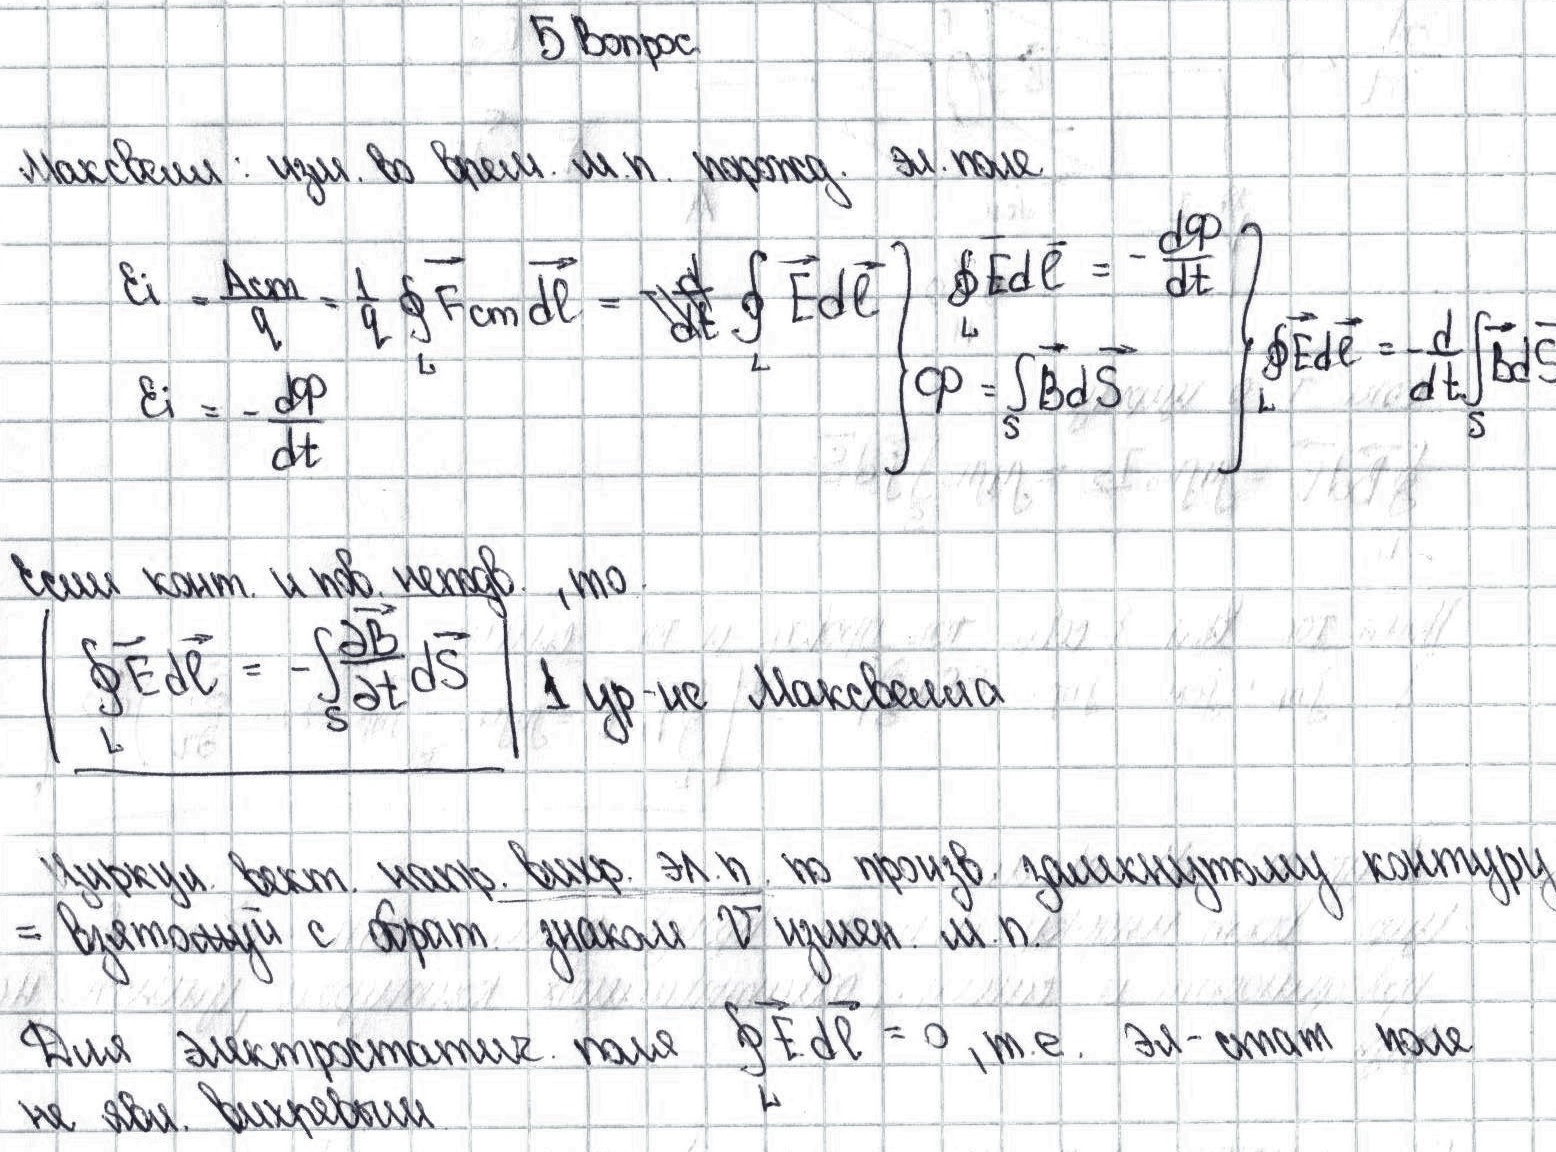 5 Вопрос
Максвелл: изм. во врем. м.п. порожд. эл. поле
Ɛi = Aст/q = 1/q ∮_L F⃗ст dl⃗ = d/dt ∮_L E⃗dl⃗ } ∮_L E⃗dl⃗ = - dФ/dt }
Ɛi = - dФ/dt
Ф = ∫_S B⃗dS⃗
∮_L E⃗dl⃗ = - d/dt ∫_S B⃗dS⃗
Если конт. и пов. неподв., то
∮_L E⃗dl⃗ = - ∫_S ∂B⃗/∂t dS⃗ 1 ур-ие Максвелла
Циркул. вект. напр. вихр. эл.п. по произв. замкнутому контуру
= взятой с обрат. знаком V измен. м.п.
Для электростатич. поля ∮_L E⃗dl⃗ = 0, т.е. эл-стат поле
не явл. вихревым